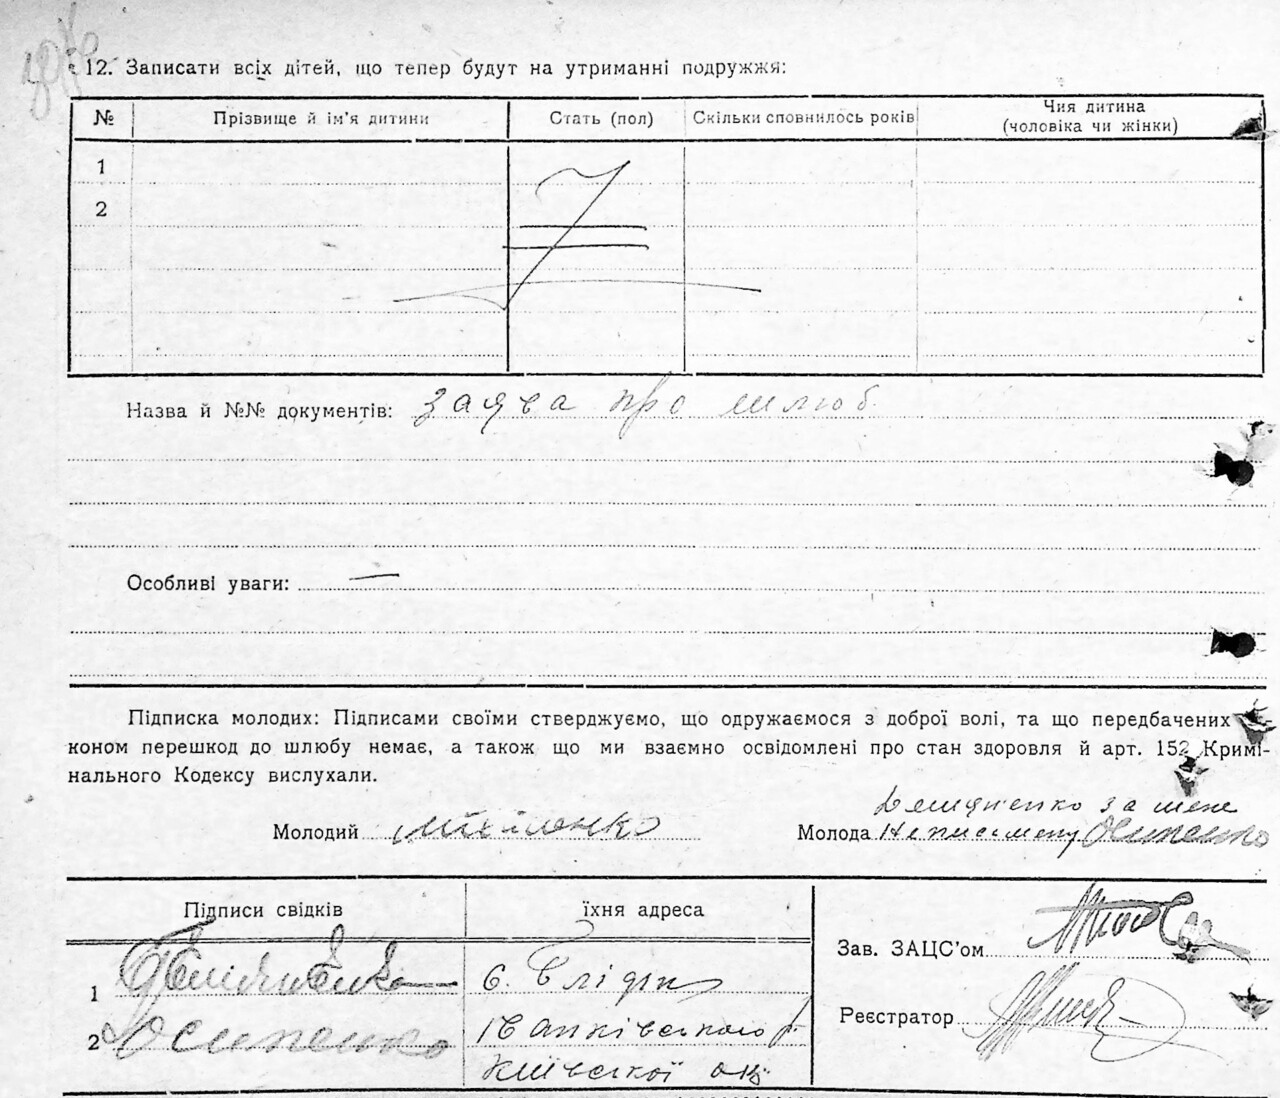 12. Записати всіх дітей, що тепер будут на утриманні подружжя:
№ Прізвище й ім'я дитини Стать (пол) Скільки сповнилось років Чия дитина
(чоловіка чи жінки)
1
2
Назва й №№ документів: заява про шлюб.
Особливі уваги: —
Підписка молодих: Підписами своїми стверджуємо, що одружаємося з доброї волі, та що передбачених
коном перешкод до шлюбу немає, а також що ми взаємно освідомлені про стан здоровля й арт. 152 Кримі-
нального Кодексу вислухали.
за мене
Молодий Молода Неписьмену Осипенко
Підписи свідків їхня адреса
Зав. ЗАЦС'ом
1 с.
Реєстратор
2 Осипенко
Київської